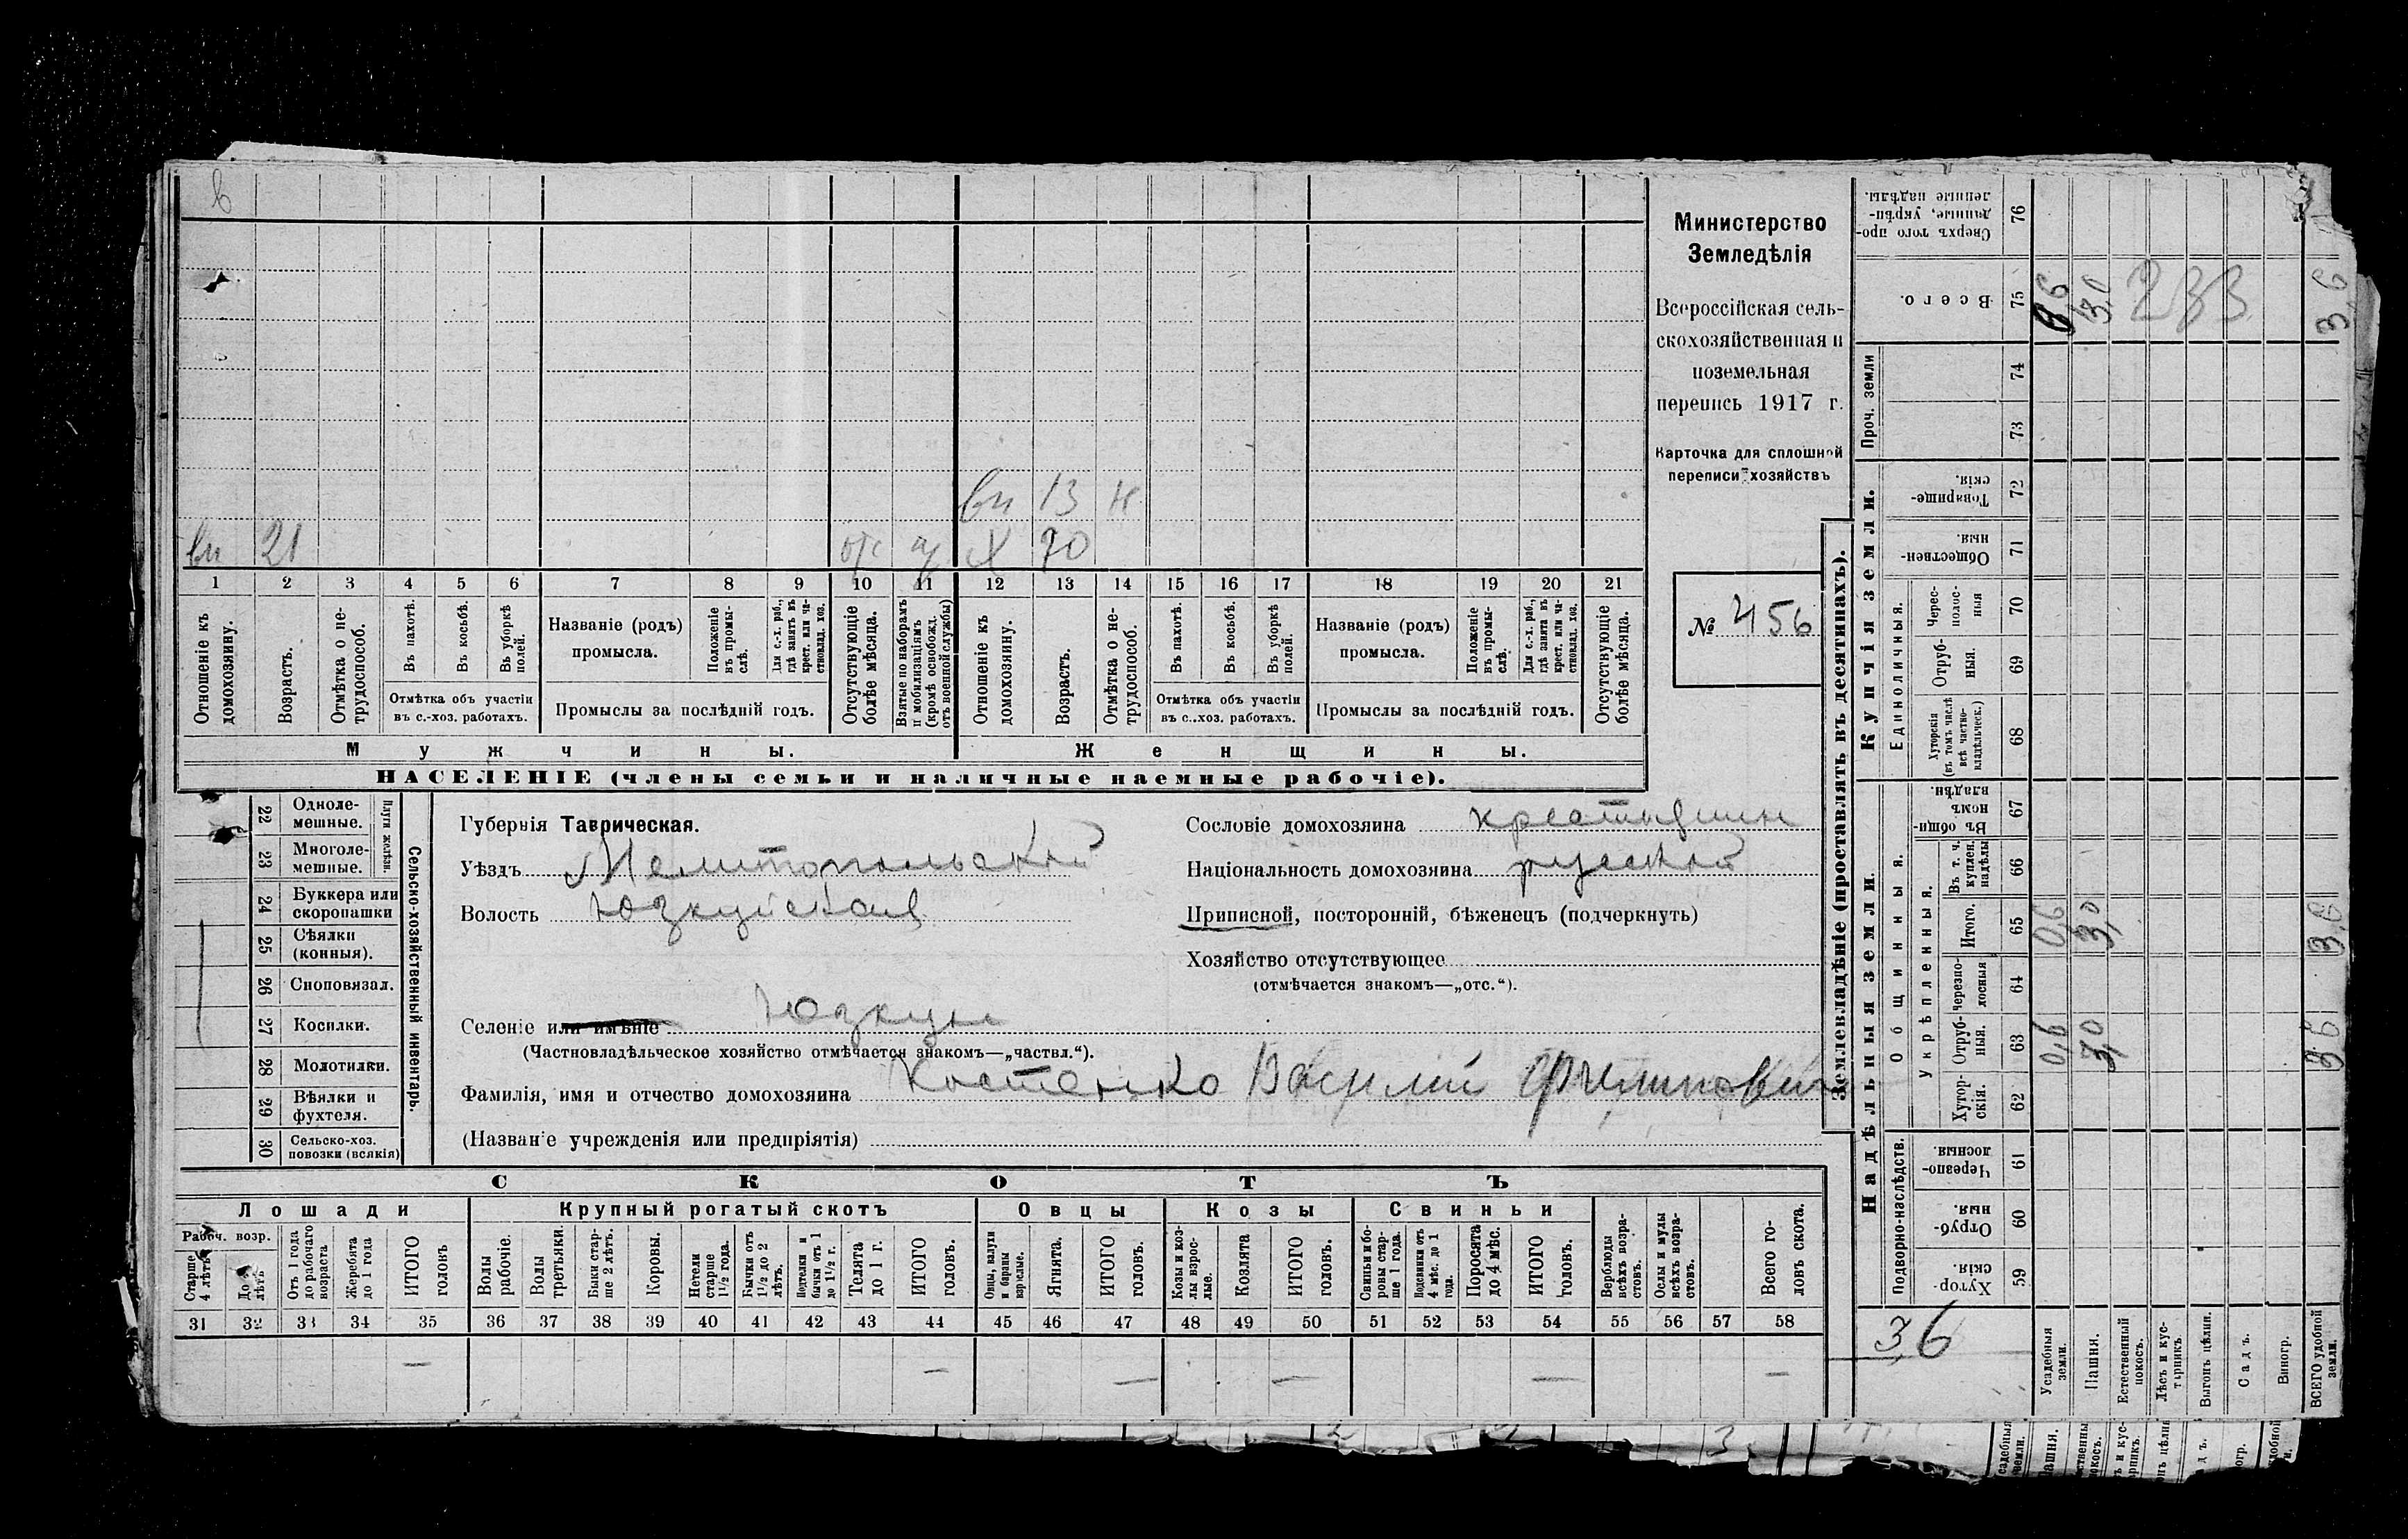 в
вн 13 н
вн 21 отс Х 70
1 2 3 4 5 6 7 8 9 10 11 12 13 14 15 16 17 18 19 20 21
Отношеніе къ домохозяину.
Возрастъ.
Отмѣтка о не-
трудоспособ.
Въ пахотѣ.
Въ косьбѣ.
Въ уборкѣ полей.
Отмѣтка объ участіи
въ с.-хоз. работахъ.
Названіе (родъ)
промысла.
Положеніе
въ промы-
слѣ.
Для с.-х. раб.,
гдѣ занятъ въ
крест. или ча-
стновлад. хоз.
Промыслы за послѣдній годъ.
Отсутствующіе
болѣе мѣсяца.
Взятые по наборамъ
и мобилизаціямъ
(кромѣ освобожд.
отъ военной службы)
Отношеніе къ
домохозяину.
Возрастъ.
Отмѣтка о не-
трудоспособ.
Въ пахотѣ.
Въ косьбѣ.
Въ уборкѣ
полей.
Отмѣтка объ участіи
въ с.-хоз. работахъ.
Названіе (родъ)
промысла.
Положеніе
въ промы-
слѣ.
Для с.-х. раб.,
гдѣ занята въ
крест. или ча-
стновлад. хоз.
Промыслы за послѣдній годъ.
Отсутствующіе
болѣе мѣсяца.
Мужчины.
Женщины.
НАСЕЛЕНІЕ (члены семьи и наличные наемные рабочіе).
Министерство
Земледѣлія
Всероссійская сель-
скохозяйственная и
поземельная
перепись 1917 г.
Карточка для сплошной
переписи хозяйствъ
№ 456
22 Одноле-
мешные.
23 Многоле-
мешные.
Плуги желѣзн.
24 Буккера или
скоропашки
25 Сѣялки
(конныя).
26 Сноповязал.
27 Косилки.
28 Молотилки.
29 Вѣялки и
фухтеля.
30 Сельско-хоз.
повозки (всякія)
Сельско-хозяйственный инвентарь.
Губернія Таврическая.
Уѣздъ Мелитопольский
Волость Юзкуйская
Селеніе или имѣніе Юзкуи
(Частновладѣльческое хозяйство отмѣчается знакомъ—„частвл.“).
Фамилія, имя и отчество домохозяина Костенко Василий Филипович
(Названіе учрежденія или предпріятія)
Сословіе домохозяина крестьянин
Національность домохозяина русский
Приписной, посторонній, бѣженецъ (подчеркнуть)
Хозяйство отсутствующее
(отмѣчается знакомъ—„отс.“).
СКОТЪ
Лошади
Крупный рогатый скотъ
Овцы
Козы
Свиньи
Рабоч. возр.
Старше
4 лѣтъ
До 4
лѣтъ
Отъ 1 года
до рабочаго
возраста
Жеребята
до 1 года
ИТОГО
головъ
Волы
рабочіе.
Волы
третьяки.
Быки стар-
ше 2 лѣтъ.
Коровы.
Нетели
старше
1½ года.
Бычки отъ
1½ до 2
лѣтъ.
Подтелки и
бычки отъ 1
до 1½ г.
Телята
до 1 г.
ИТОГО
головъ.
Овцы, валухи
и бараны
взрослые.
Ягнята.
ИТОГО
головъ.
Козы и коз-
лы взрос-
лые.
Козлята
ИТОГО
головъ.
Свиньи и бо-
ровы стар-
ше 1 года.
Подсвинки отъ
4 мѣс. до 1
года.
Поросята
до 4 мѣс.
ИТОГО
головъ.
Верблюды
всѣхъ возра-
стовъ.
Ослы и мулы
всѣхъ возра-
стовъ.
Всего го-
ловъ скота.
31 32 33 34 35 36 37 38 39 40 41 42 43 44 45 46 47 48 49 50 51 52 53 54 55 56 57 58
— — — — — —
Землевладѣніе (проставлять въ десятинахъ).
Купчія земли.
Надѣльныя земли.
Сверхъ того про-
данные, укрѣп-
ленные надѣлы.
76
Всего.
75
0,6
3,0
233
3,6
Проч. земли
74
73
Товарище-
скія.
72
Обществен-
ныя.
71
Единоличныя.
Черес-
полос-
ныя
70
Отруб-
ныя.
69
Хуторскія
(въ томъ числѣ
всѣ частно-
владѣльческ.)
68
Общинныя.
Въ общи-
нномъ
владѣн.
67
Укрѣпленныя.
Въ т. ч.
куплен.
надѣлы
66
Итого.
65
0,6
3,0
3,6
Черезпо-
лосныя
64
Отруб-
ныя.
63
0,6
3,0
3,6
Хутор-
скія.
62
Подворно-наслѣдств.
Черезпо-
лосныя
61
Отруб-
ныя.
60
Хутор-
скія.
59
3,6
Усадебныя
земли.
Пашня.
Естественный
покосъ.
Лѣсъ и кус-
тарникъ.
Выгонъ цѣлин.
Садъ.
Виногр.
ВСЕГО удобной
земли.